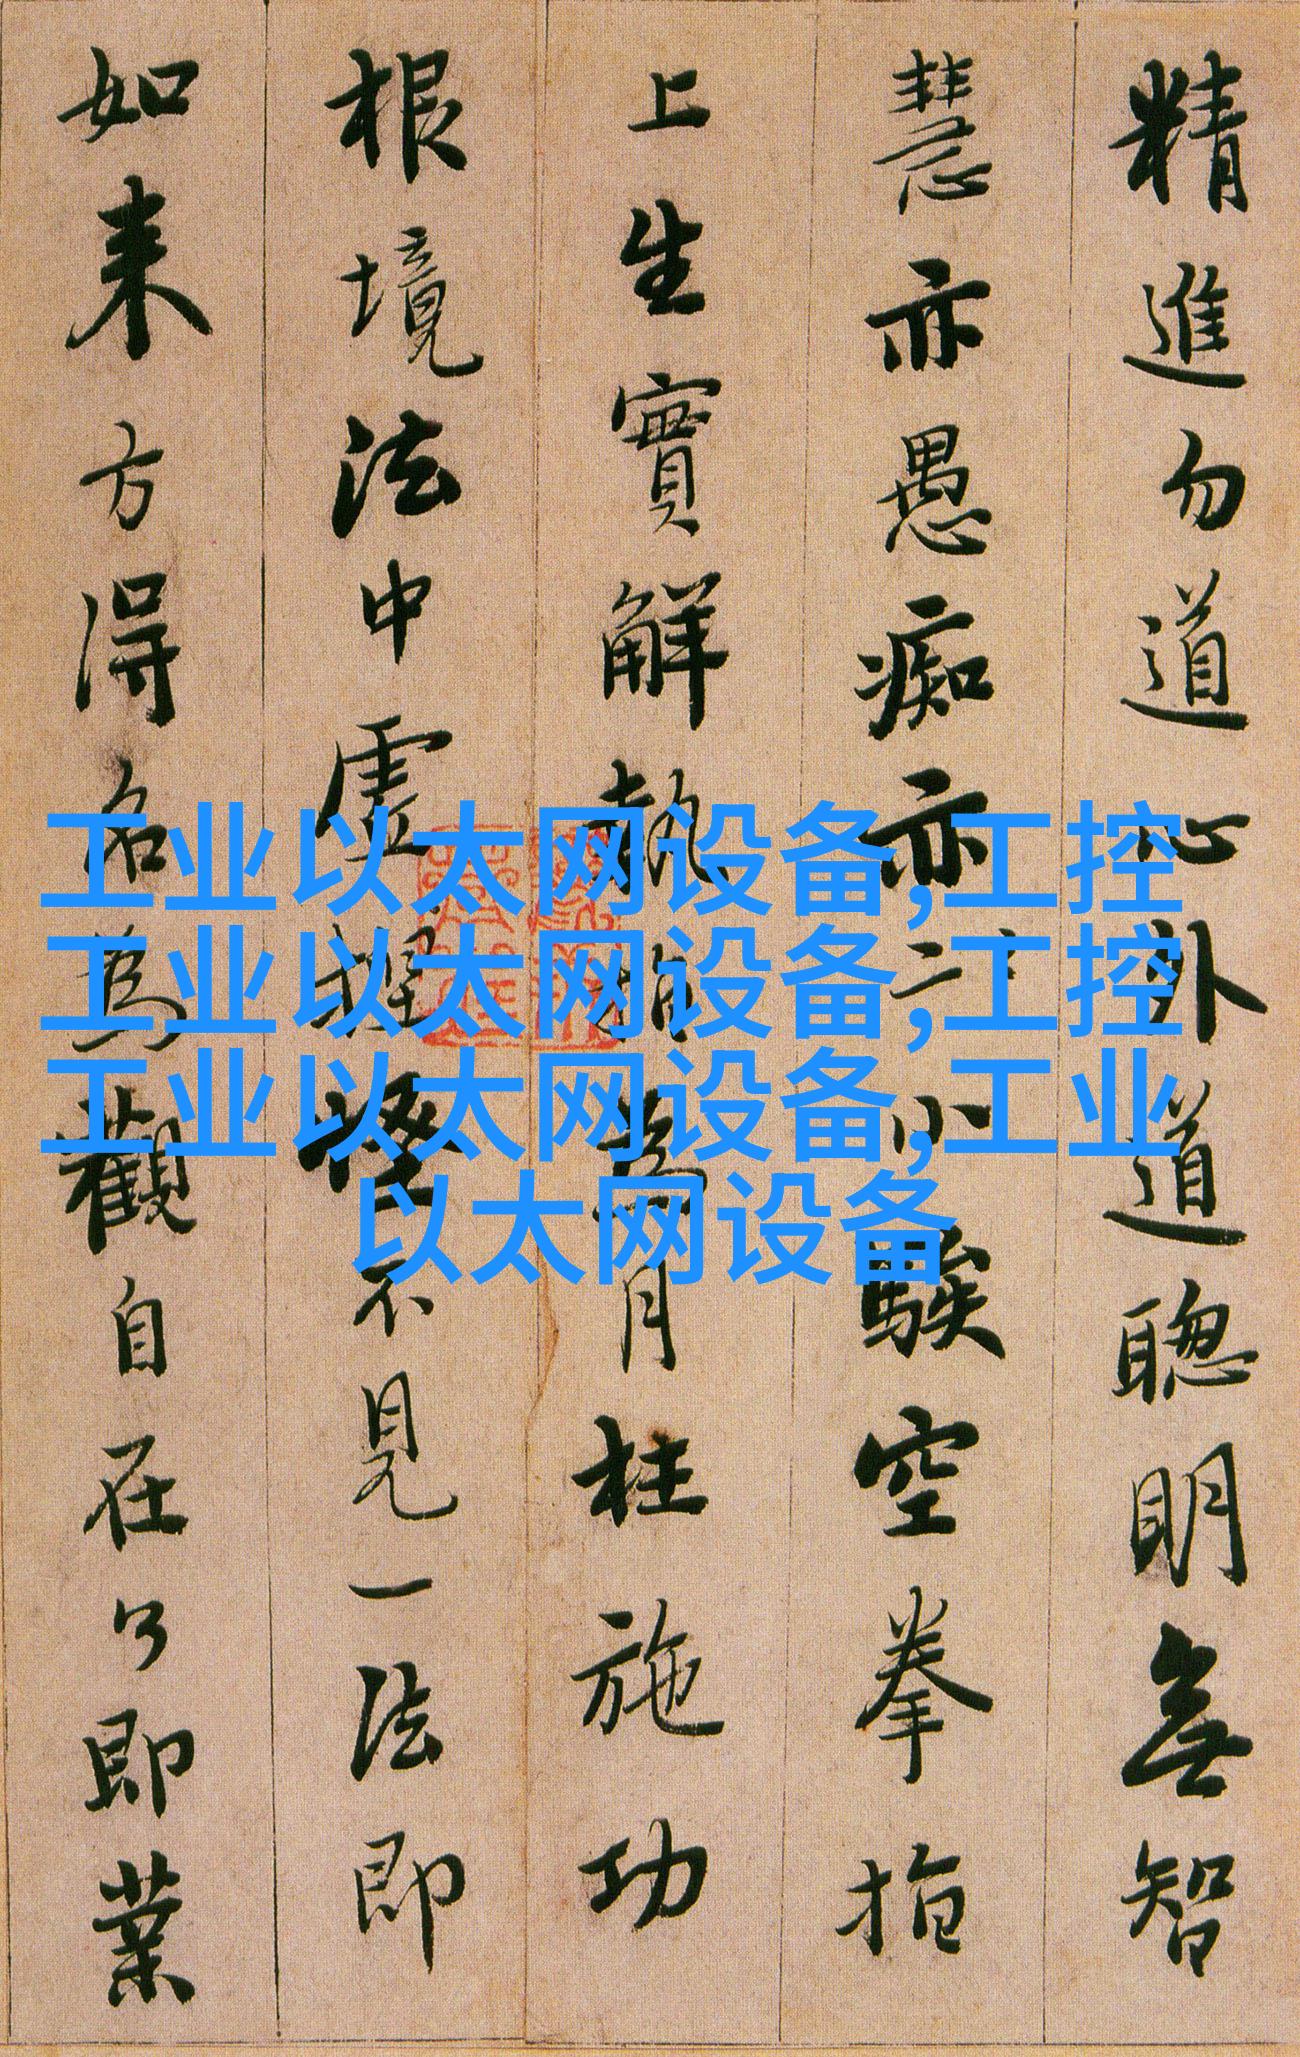 精進勿道心外道聰明無智
慧亦愚痴亦小騃空拳指
上生實解執指為月枉施功
根境法中虛捏怪不見一法即
如来方得名為觀自在了即業
工业以太网设备,工控
工业以太网设备,工控
工业以太网设备,工业
以太网设备